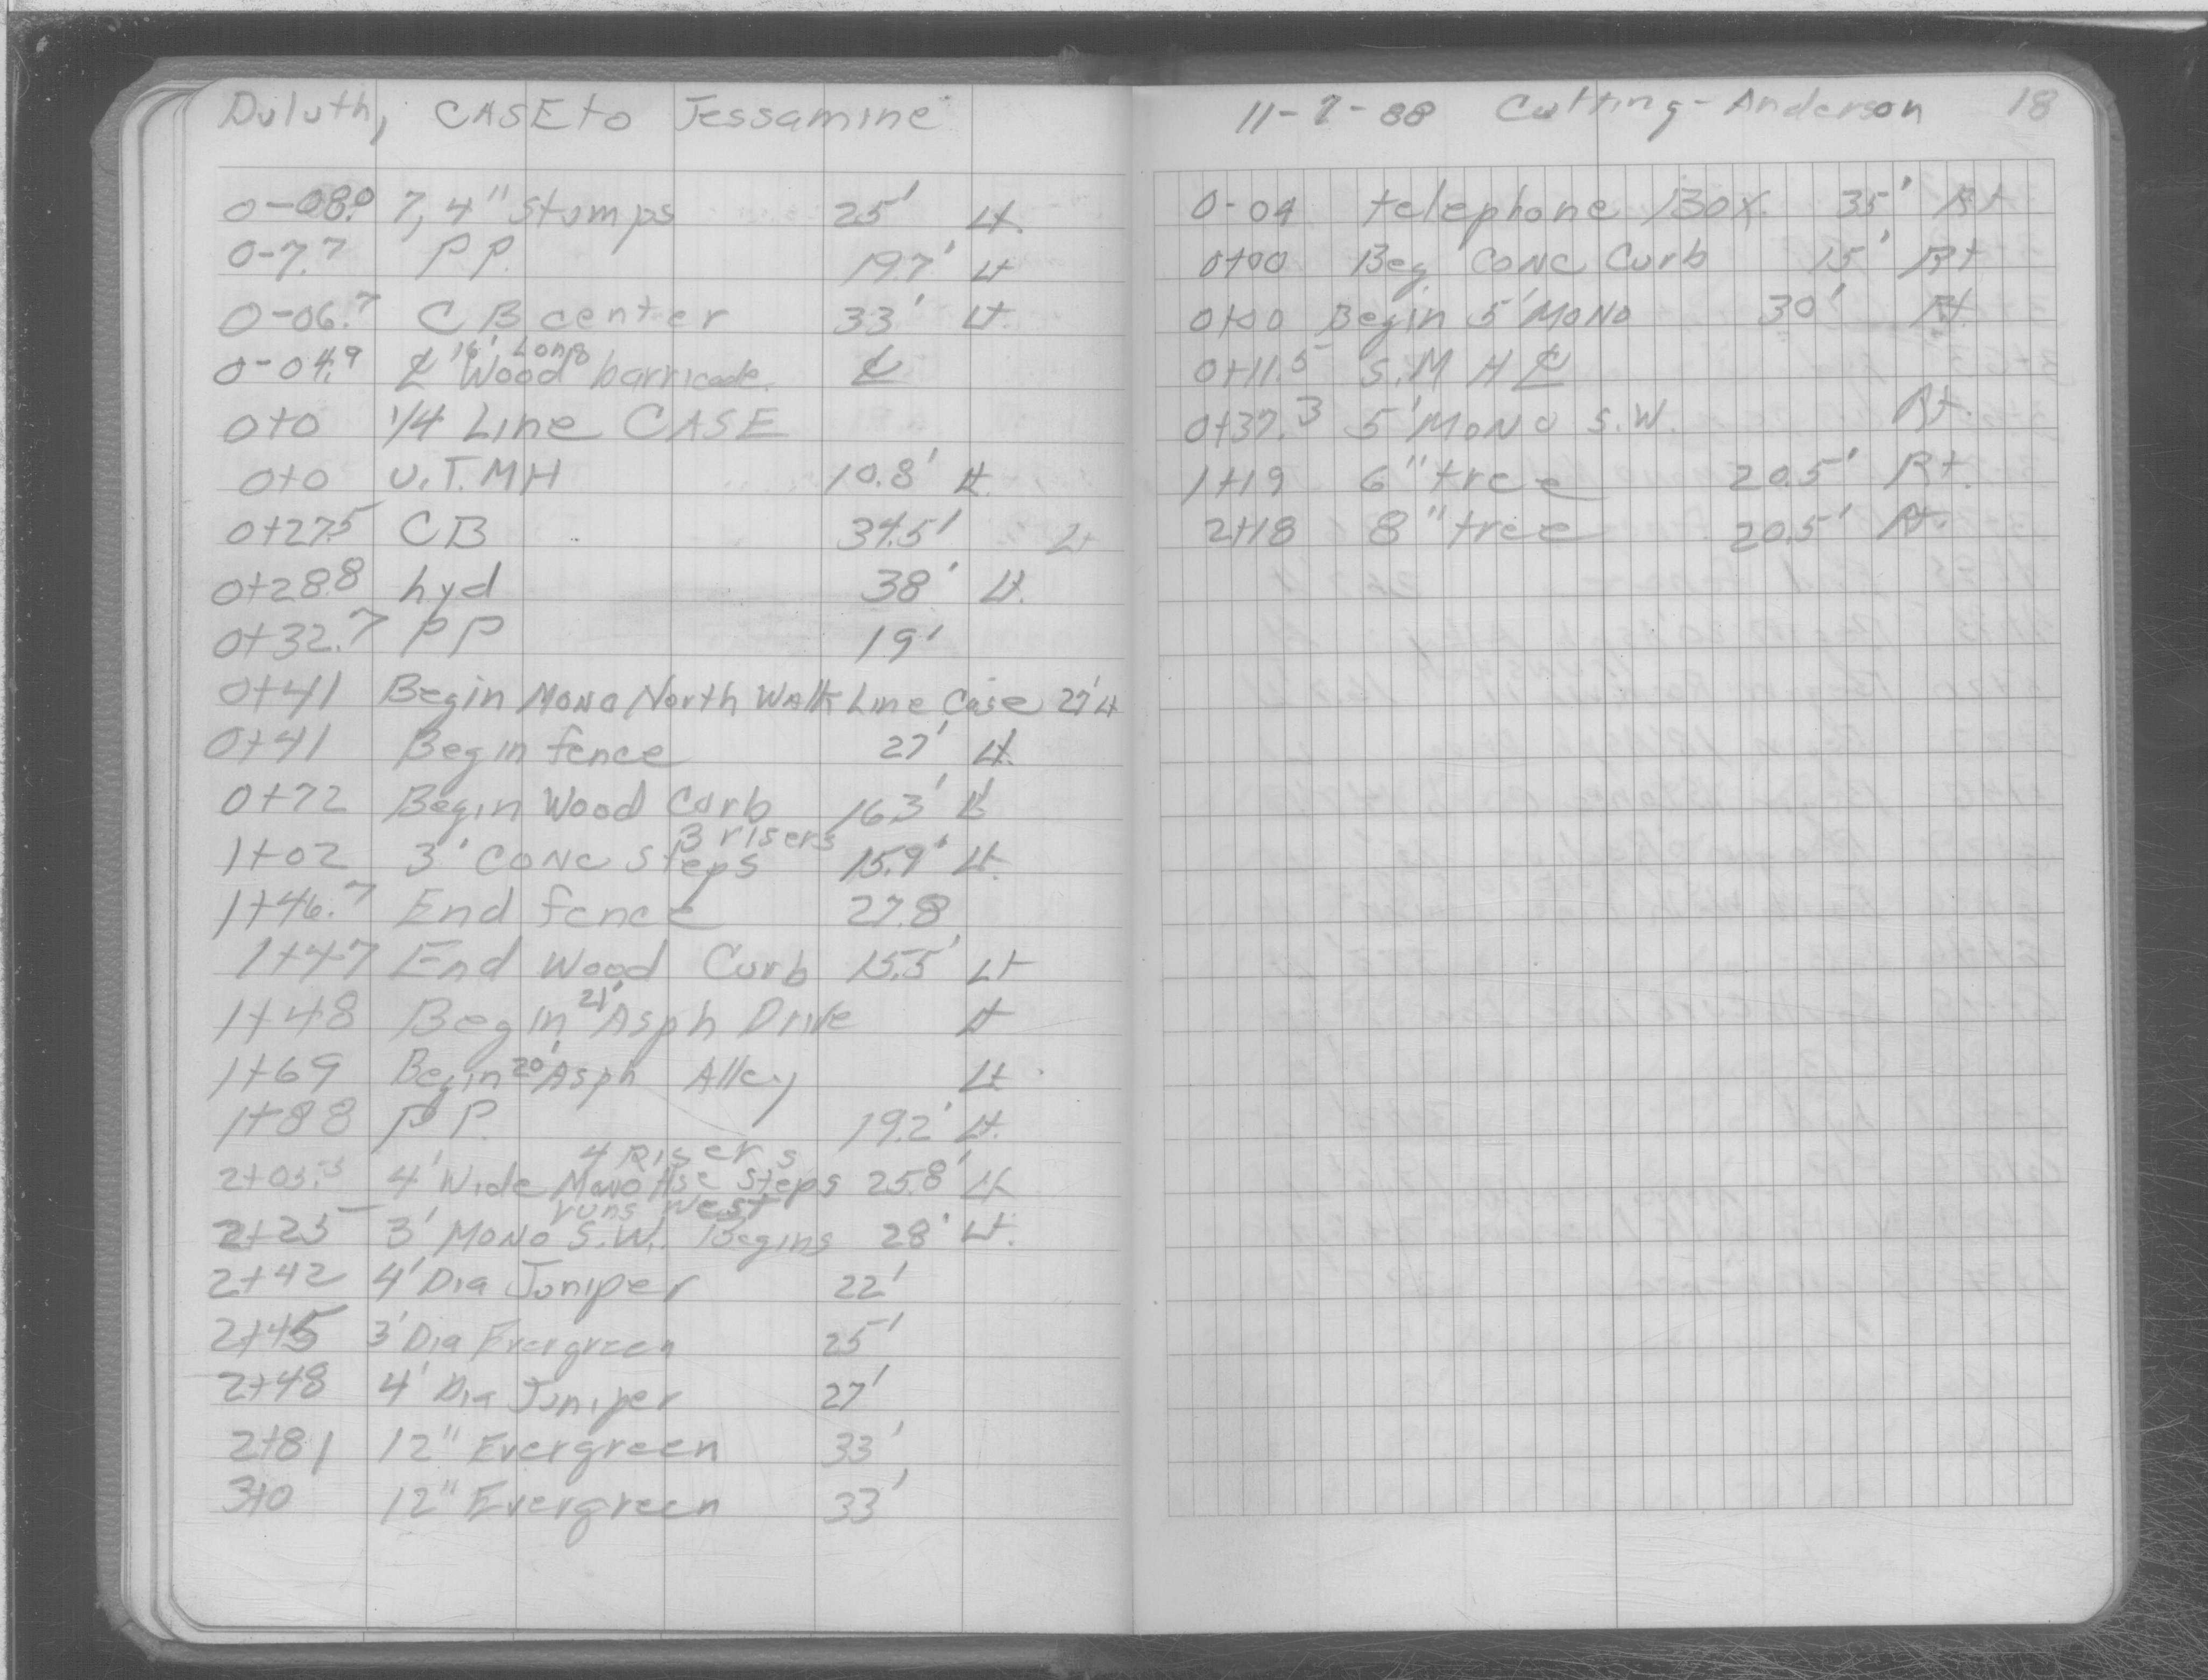 Duluth, CASE to Jessamine
0-08.0 7, 4" Stumps 25' Lt.
0-7.7 P.P. 19.7' Lt
0-06.7 CB center 33' Lt.
0-04.9 ℄ 16' Long Wood barricade. ℄
0+0 1/4 Line CASE
0+0 U.T. MH 10.8' Lt.
0+27.5 CB 34.5' Lt
0+28.8 hyd 38' Lt.
0+32.7 PP 19'
0+41 Begin Mono North Walk Line Case 27' Lt
0+41 Begin fence 27' Lt.
0+72 Begin Wood Curb 16.3' Lt
3 risers
1+02 3' Conc Steps 15.9' Lt.
1+46.7 End fence 27.8
1+47 End Wood Curb 15.5' Lt
1+48 Begin 21' Asph Drive Lt
1+69 Begin 20' Asph Alley Lt.
1+88 P.P. 19.2' Lt.
4 Risers
2+03.5 4' Wide Mono Hse Steps 25.8' Lt
runs West
2+25 3' Mono S.W. Begins 28' Lt.
2+42 4' Dia Juniper 22'
2+45 3' Dia Evergreen 25'
2+48 4' Dia Juniper 27'
2+81 12" Evergreen 33'
3+0 12" Evergreen 33'
11-7-88 Cutting - Anderson 18
0-04 telephone Box. 35' Rt
0+00 Beg. Conc Curb 15' Rt
0+00 Begin 5' Mono 30' Rt.
0+11.5 S.M H ℄
0+37.3 5' Mono S.W. Rt.
1+19 6" tree 20.5' Rt.
2+18 8" tree 20.5' Rt.